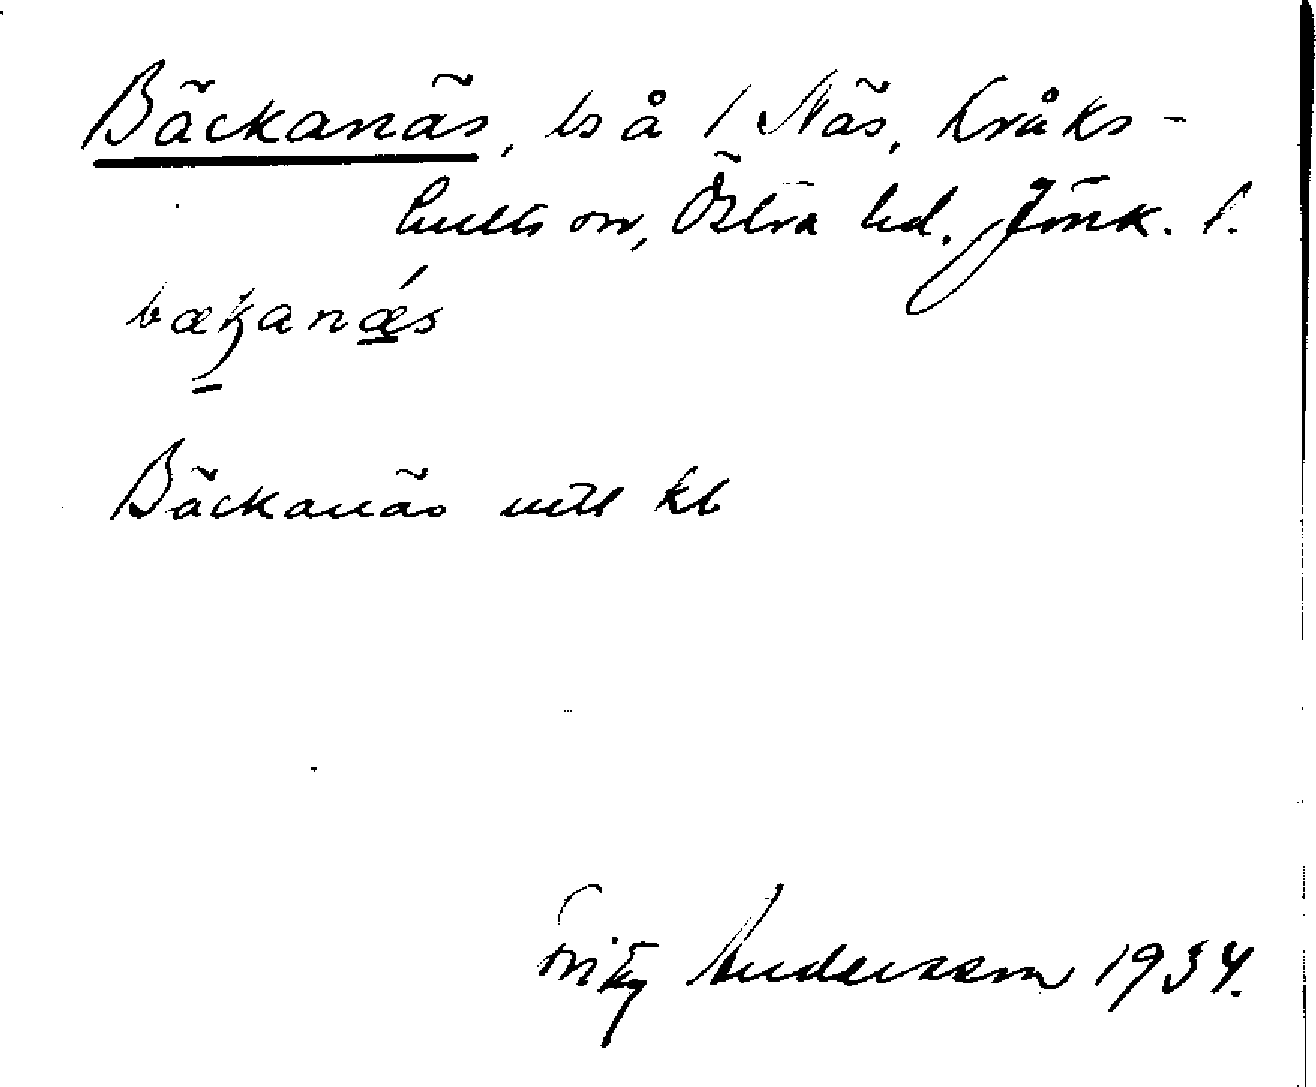 Bäckanäs, ls å 1 Näs, Kråks-
hults sn, Östra hd. Jönk. l.
bækanǽs
Bäckanäs mtl kb
Fritz Andersson 1934.